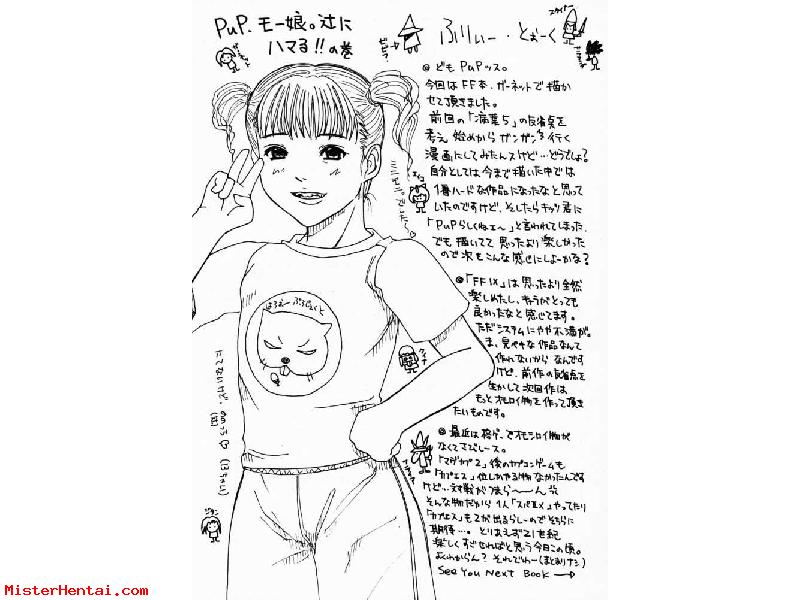 PuP. モー娘。辻に
ハマる!!の巻
ふりぃー・とぉーく
◎どもPuPッス。
今回はFF本、ガーネットで描か
せて頂きました。
前回の「海藻5」の反省点を
考え 始めからガンガン行く
漫画にしてみたんスけど…どうでしょ?
自分としては今まで描いた中では
1番ハードな作品になったなと思って
いたのですけど、そしたらキッツ君に
「PuPらしくねェ〜」と言われてしまった、
でも描いてて思ったより楽しかった
ので次もこんな感じにしよーかな?
◎「FFIX」は思ったより全然
楽しめたし、キャラがとっても
良かったなと感じてます。
ただシステムにやや不満が。
ま、完ペキな作品なんて
作れないからなんです
けど、前作の反省を
生かして次回作は
もっとオモロイ物を作って頂き
たいものです。
◎最近は格ゲーでオモシロイ物が
なくてさびしース。
「マヴカプ2」後のカプコンゲームも
「カプエス」位しかやる物なかったんです
けど…対戦がつまら〜〜ん
そんな物だから1人「スパIIX」やってたり
「カプエス」も2が出るらしーのでそちらに
期待…。とりあえず21世紀
楽しくすごせればと思う今日この頃。
よくわからん? それでわー(まとまりナシ)
See You Next Book →
はろぉーぷろじぇくと
にてないけど、
ののっち♡
スタイナー
ビビ
エーコ
クイナ
ジタン
MisterHentai.com